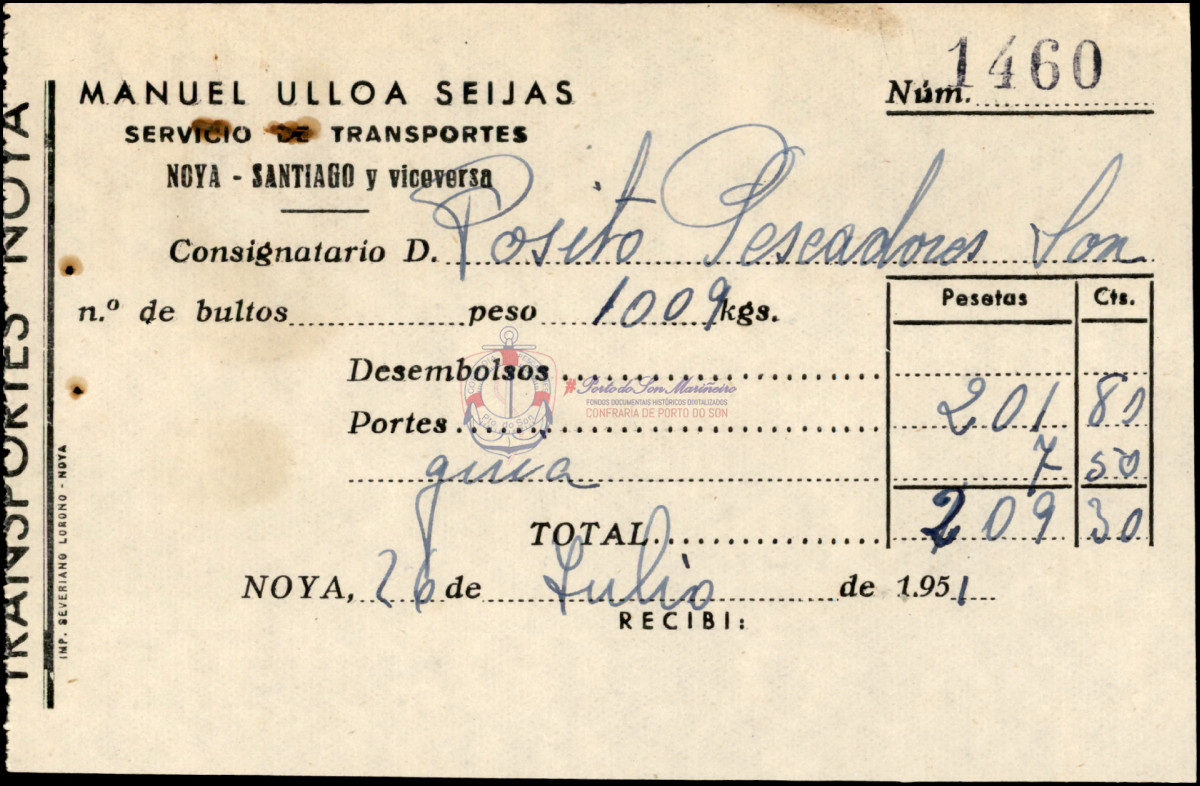 TRANSPORTES NOYA
IMP. SEVERIANO LOROÑO - NOYA
MANUEL ULLOA SEIJAS
SERVICIO DE TRANSPORTES
NOYA - SANTIAGO y viceversa
Núm. 1460
Consignatario D. Posito Pescadores Son
n.º de bultos peso 1009 kgs.
Pesetas Cts.
Desembolsos
Portes 201 80
guia 7 50
TOTAL 209 30
NOYA, 26 de Julio de 1.951
RECIBI:
#Porto do Son Mariñeiro
FONDOS DOCUMENTAIS HISTÓRICOS DIXITALIZADOS
CONFRARÍA DE PORTO DO SON
Pto. do Son